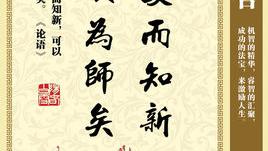 机智的精华，睿智的汇聚，
成功的法宝，来激励人生。
而知新
為師矣
而知新，可以
矣。
《论语》